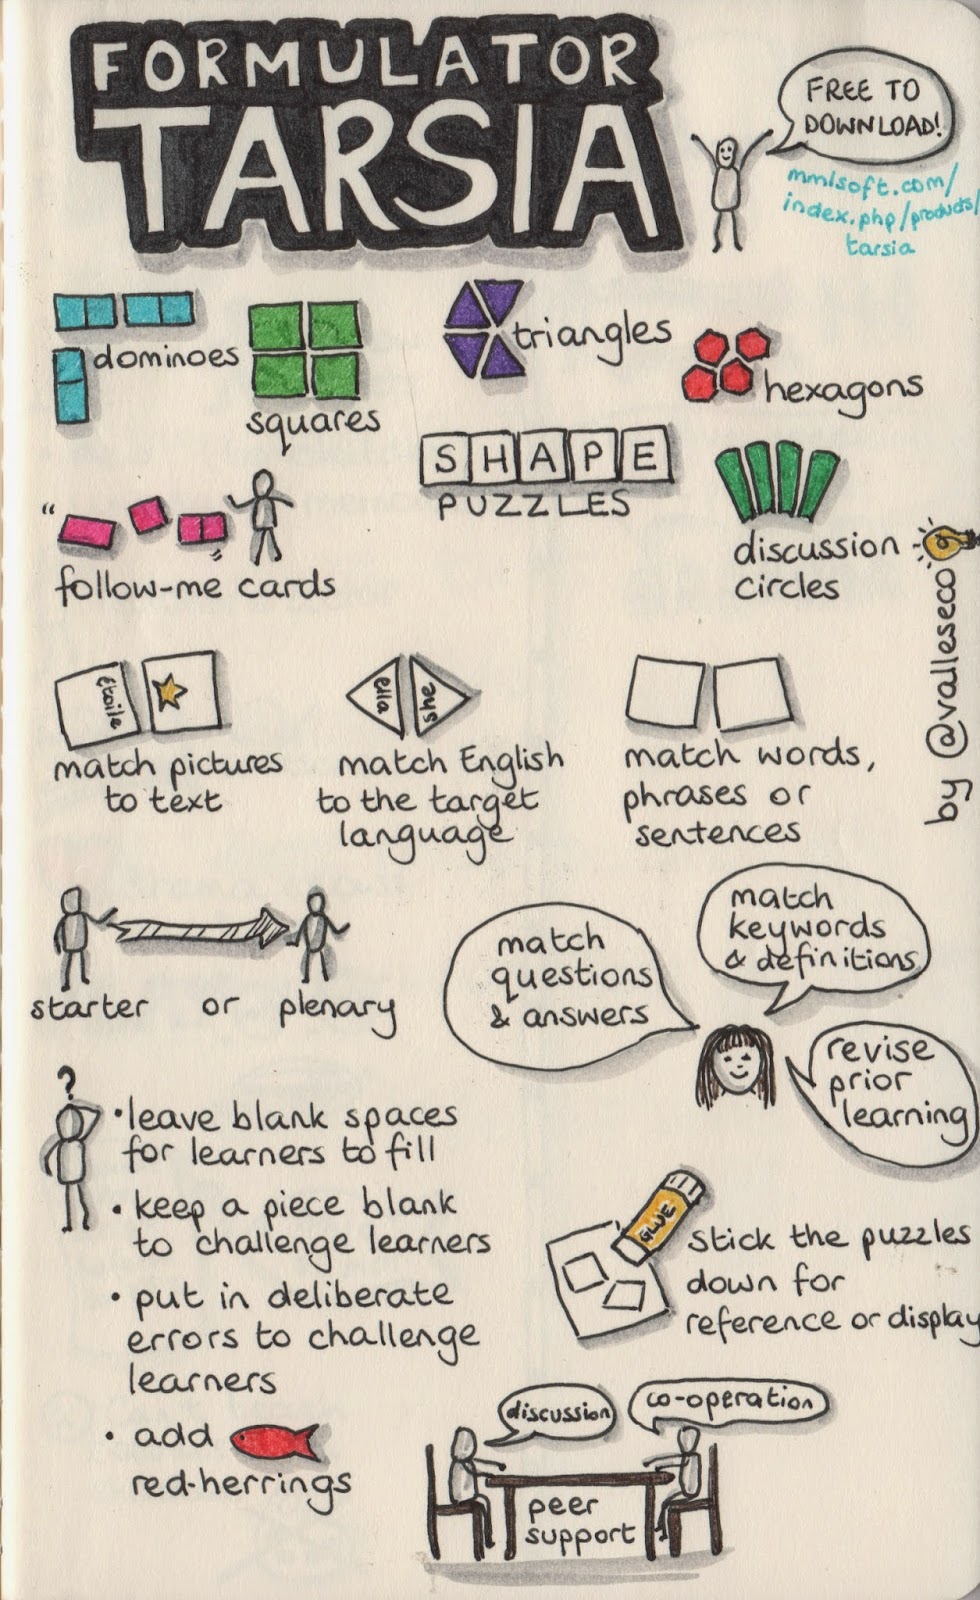 FORMULATOR
TARSIA
FREE TO
DOWNLOAD!
mmlsoft.com/
index.php/products/
tarsia
dominoes
squares
triangles
hexagons
SHAPE
PUZZLES
"
"
follow-me cards
discussion
circles
by @valleseco
étoile
match pictures
to text
ella
she
match English
to the target
language
match words,
phrases or
sentences
starter or plenary
match
questions
& answers
match
keywords
& definitions
revise
prior
learning
?
• leave blank spaces
for learners to fill
• keep a piece blank
to challenge learners
• put in deliberate
errors to challenge
learners
• add
red-herrings
GLUE
stick the puzzles
down for
reference or display
discussion
co-operation
peer
support